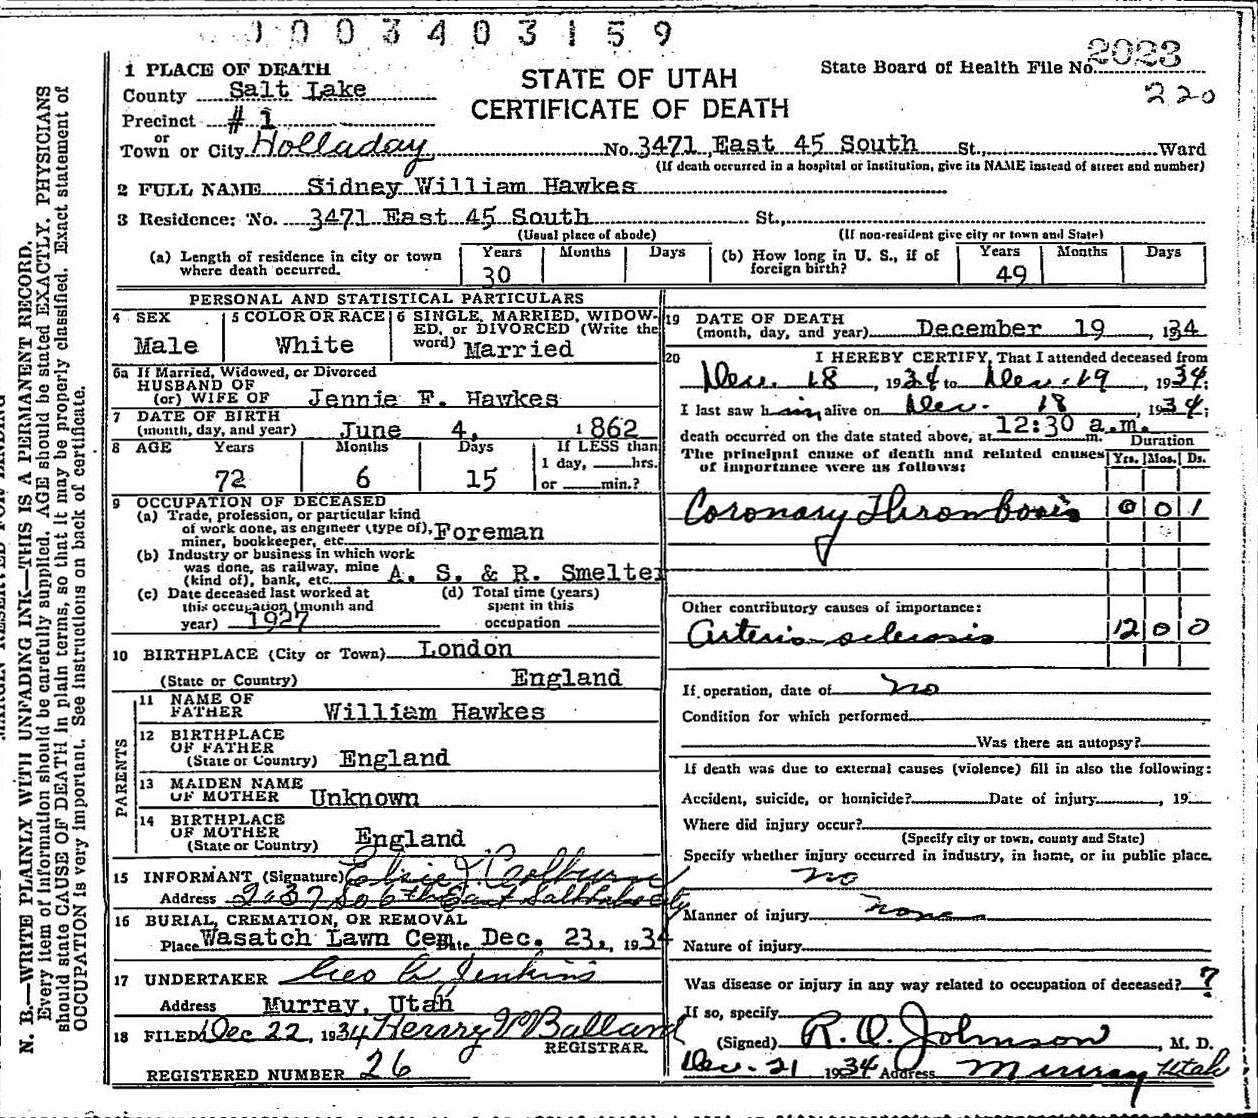 1003403159
1 PLACE OF DEATH
County Salt Lake
Precinct #1
or
Town or City Holladay
STATE OF UTAH
CERTIFICATE OF DEATH
State Board of Health File No. 2023
220
No. 3471 East 45 South St., Ward
(If death occurred in a hospital or institution, give its NAME instead of street and number)
2 FULL NAME Sidney William Hawkes
3 Residence: No. 3471 East 45 South St.,
(Usual place of abode) (If non-resident give city or town and State)
(a) Length of residence in city or town where death occurred. Years 30 Months Days
(b) How long in U. S., if of foreign birth? Years 49 Months Days
PERSONAL AND STATISTICAL PARTICULARS
4 SEX Male
5 COLOR OR RACE White
6 SINGLE, MARRIED, WIDOW-
ED, or DIVORCED (Write the
word) Married
6a If Married, Widowed, or Divorced
HUSBAND OF
(or) WIFE OF Jennie F. Hawkes
7 DATE OF BIRTH
(month, day, and year) June 4, 1862
8 AGE Years Months Days If LESS than
1 day, hrs.
72 6 15 or min.?
9 OCCUPATION OF DECEASED
(a) Trade, profession, or particular kind
of work done, as engineer (type of),
miner, bookkeeper, etc. Foreman
(b) Industry or business in which work
was done, as railway, mine
(kind of), bank, etc. A. S. & R. Smelter
(c) Date deceased last worked at
this occupation (month and
year) 1927
(d) Total time (years)
spent in this
occupation
10 BIRTHPLACE (City or Town) London
(State or Country) England
PARENTS
11 NAME OF
FATHER William Hawkes
12 BIRTHPLACE
OF FATHER
(State or Country) England
13 MAIDEN NAME
OF MOTHER Unknown
14 BIRTHPLACE
OF MOTHER
(State or Country) England
15 INFORMANT (Signature) Elsie Colburn
Address 2037 So 6th East Salt Lake City
16 BURIAL, CREMATION, OR REMOVAL
Place Wasatch Lawn Cem. Date Dec. 23, 1934
17 UNDERTAKER Geo A Jenkins
Address Murray, Utah
18 FILED Dec 22, 1934 Henrry W Balland
REGISTRAR.
REGISTERED NUMBER 26
19 DATE OF DEATH
(month, day, and year) December 19 1934
20 I HEREBY CERTIFY, That I attended deceased from
Dec. 18, 1934 to Dec. 19, 1934;
I last saw him alive on Dec. 18, 1934;
death occurred on the date stated above, at 12:30 a.m. m.
Duration
The principal cause of death and related causes
of importance were as follows: Yrs. Mos. Ds.
Coronary Thrombosis 0 0 1
Other contributory causes of importance:
Arterio-sclerosis 12 0 0
If operation, date of no
Condition for which performed
Was there an autopsy?
If death was due to external causes (violence) fill in also the following:
Accident, suicide, or homicide? Date of injury , 19
Where did injury occur?
(Specify city or town, county and State)
Specify whether injury occurred in industry, in home, or in public place.
no
Manner of injury none
Nature of injury
Was disease or injury in any way related to occupation of deceased? ?
If so, specify
(Signed) R. O. Johnson, M. D.
Dec. 21 1934 Address Murray Utah
N. B.—WRITE PLAINLY WITH UNFADING INK—THIS IS A PERMANENT RECORD.
Every item of information should be carefully supplied. AGE should be stated EXACTLY. PHYSICIANS
should state CAUSE OF DEATH in plain terms, so that it may be properly classified. Exact statement of
OCCUPATION is very important. See instructions on back of certificate.